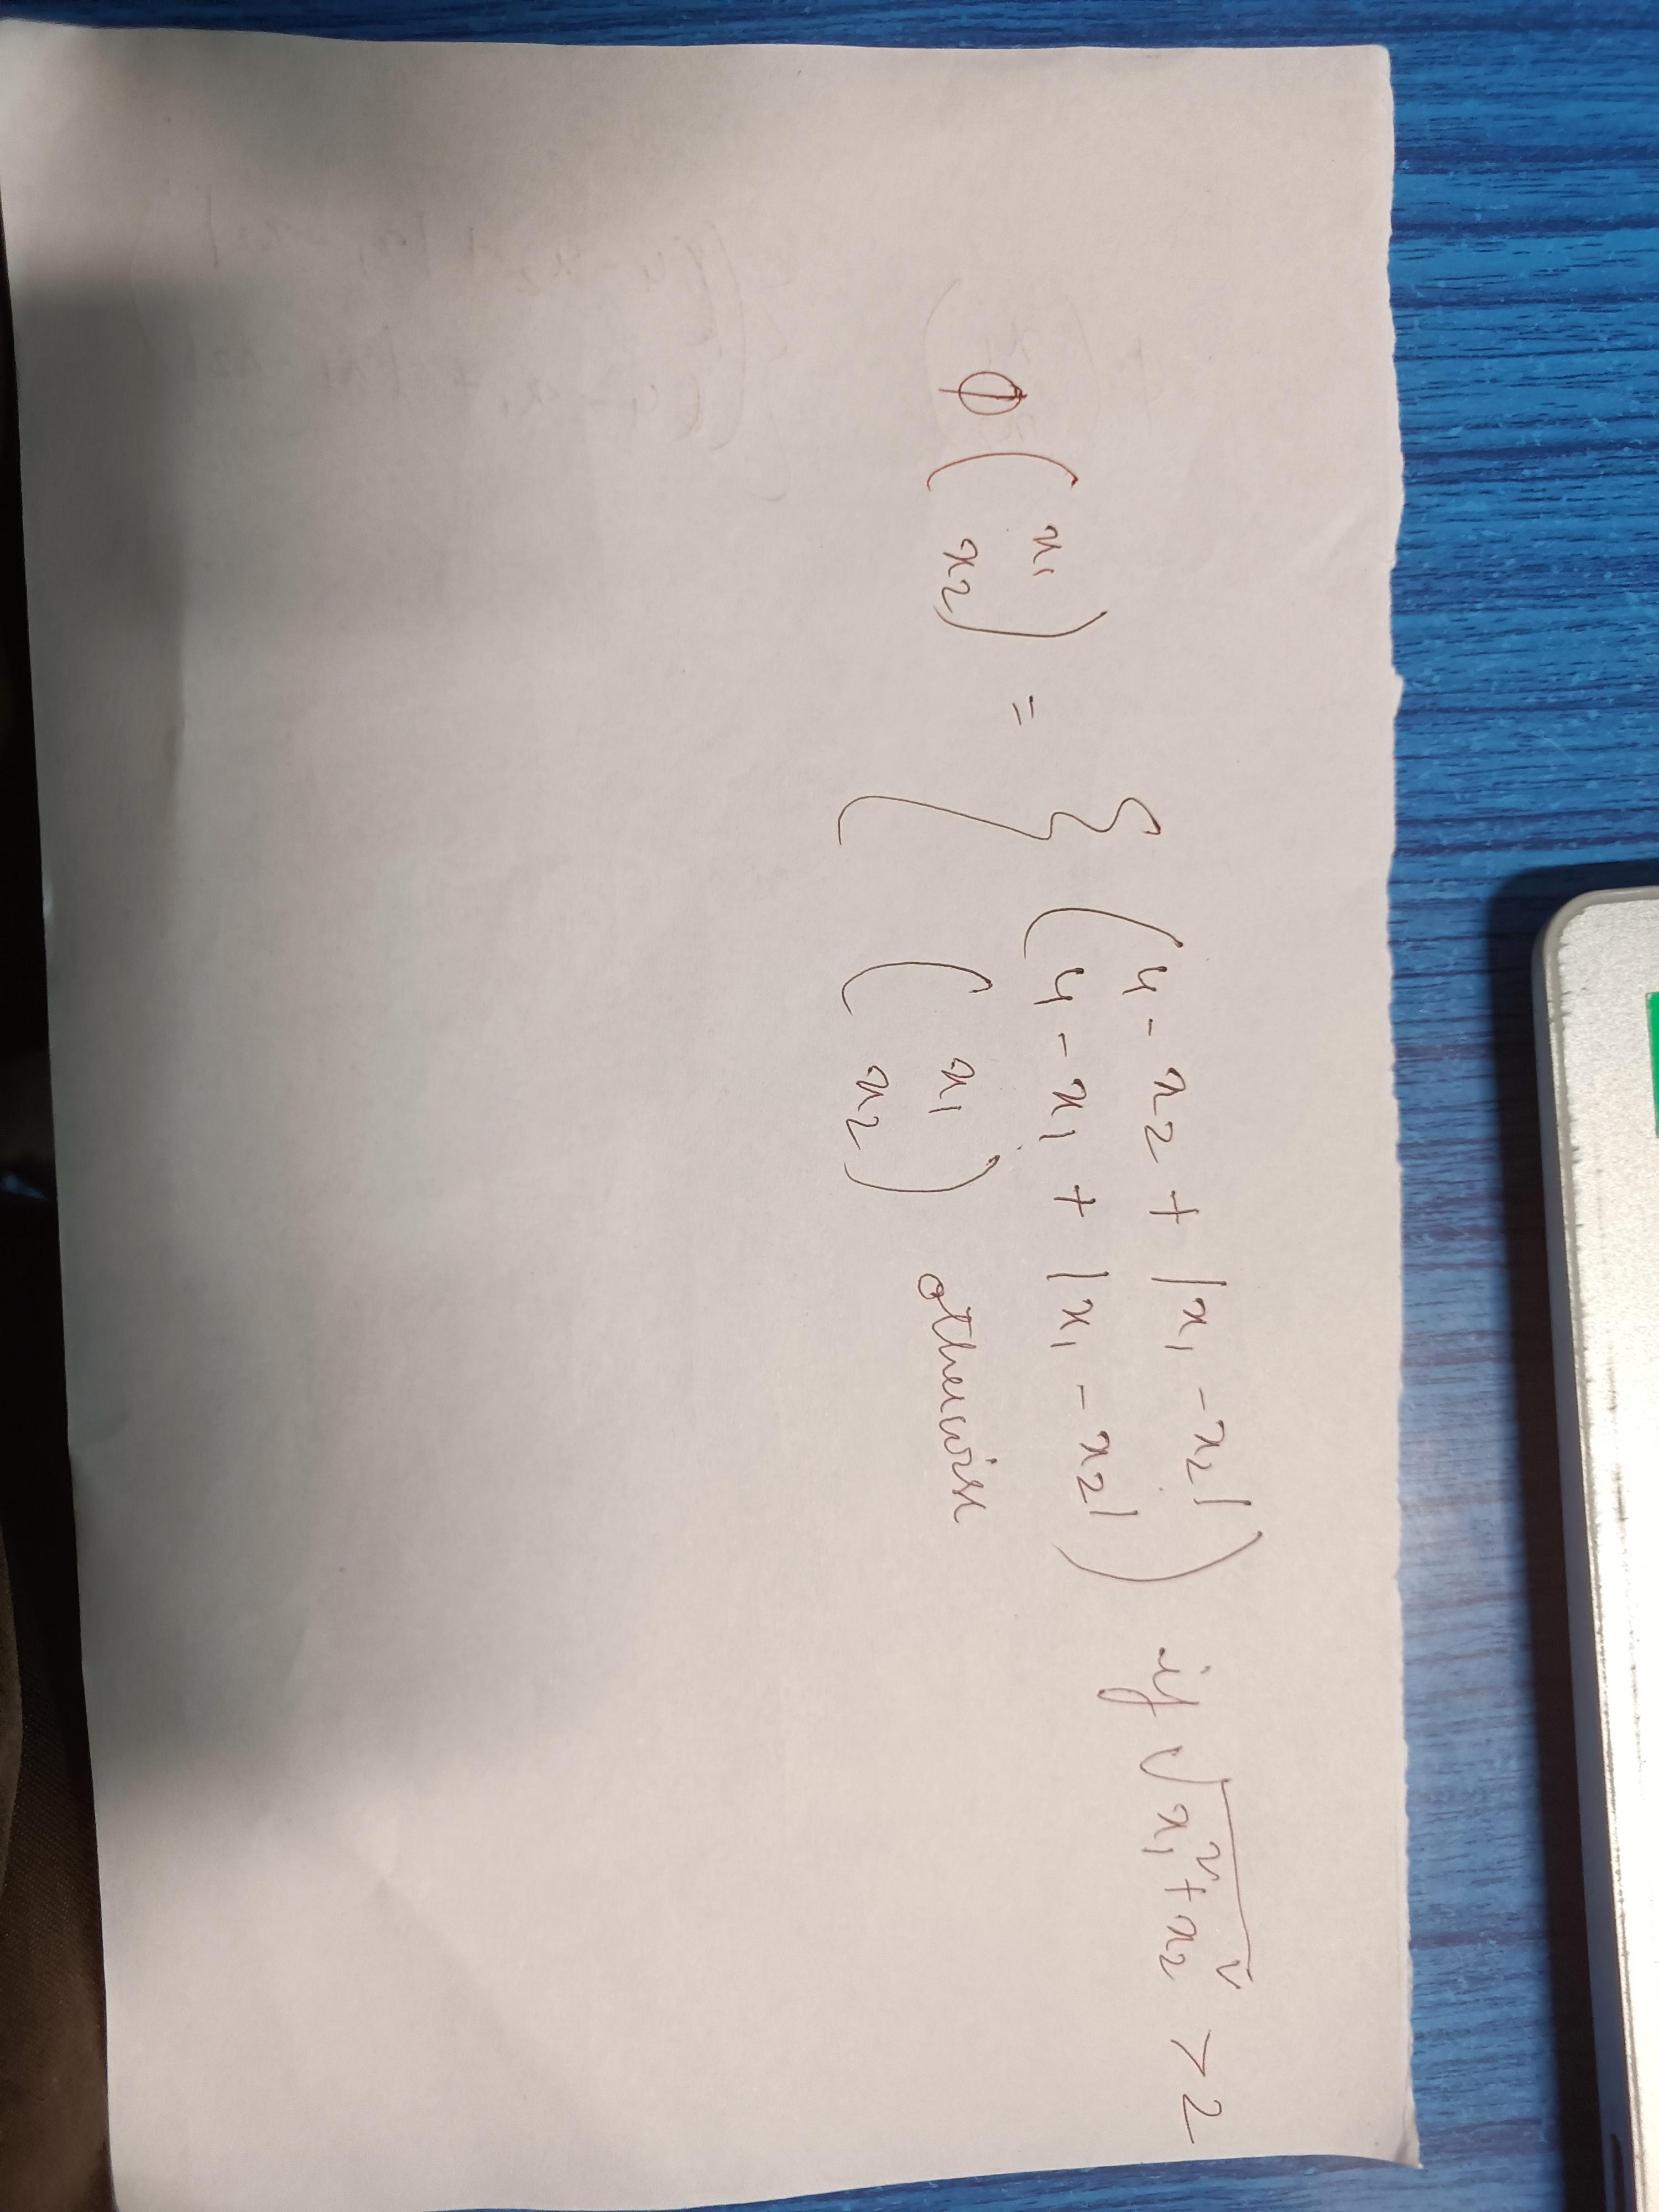 Φ(x₁ x₂) = { (4 - x₂ + |x₁ - x₂|
4 - x₁ + |x₁ - x₂|) if √(x₁² + x₂²) > 2
(x₁
x₂) otherwise